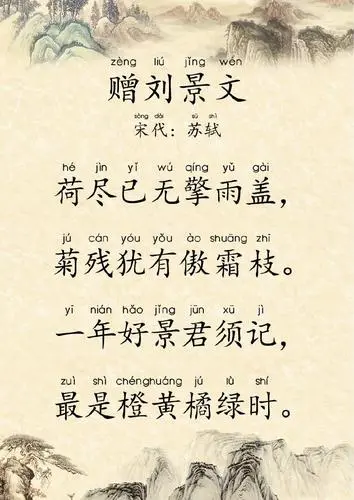 zèng liú jǐng wén
赠刘景文
sòng dài sū shì
宋代：苏轼
hé jìn yǐ wú qíng yǔ gài
荷尽已无擎雨盖，
jú cán yóu yǒu ào shuāng zhī
菊残犹有傲霜枝。
yī nián hǎo jǐng jūn xū jì
一年好景君须记，
zuì shì chénghuáng jú lǜ shí
最是橙黄橘绿时。